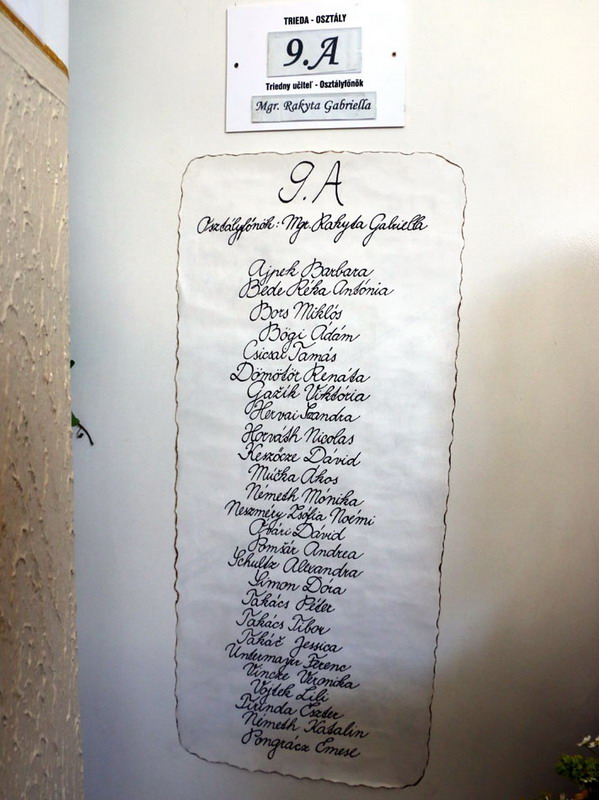 TRIEDA - OSZTÁLY
9.A
Triedny učiteľ - Osztályfőnök
Mgr. Rakyta Gabriella
9.A
Osztályfőnök: Mgr. Rakyta Gabriella
Ajpek Barbara
Bede Réka Antónia
Bors Miklós
Bögi Ádám
Csicsai Tamás
Dömötör Renáta
Gažík Viktória
Hervai Szandra
Horváth Nicolas
Keszőcze Dávid
Múčka Ákos
Németh Mónika
Neszméry Zsófia Noémi
Óvári Dávid
Pomsár Andrea
Schultz Alexandra
Simon Dóra
Takács Péter
Takács Tibor
Takáč Jessica
Untermayer Ferenc
Vincze Veronika
Vojtek Lili
Pirinda Eszter
Németh Katalin
Pongrácz Emese